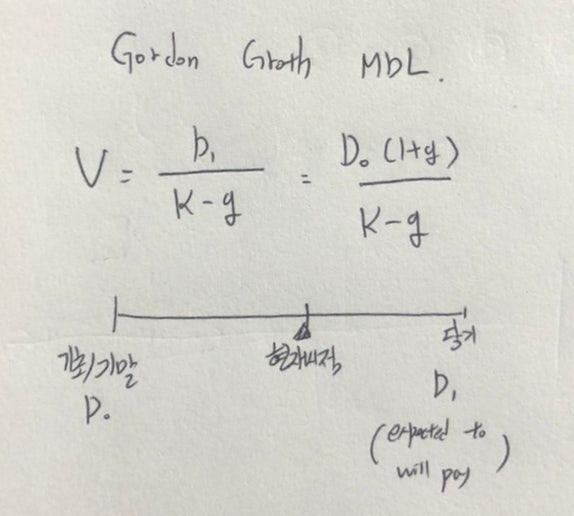 Gordon Groth MDL.
V = D₁ / K-g = D₀ (1+g) / K-g
기초/기말 현재시점 당기
D₀ D₁
(expected to
will pay)